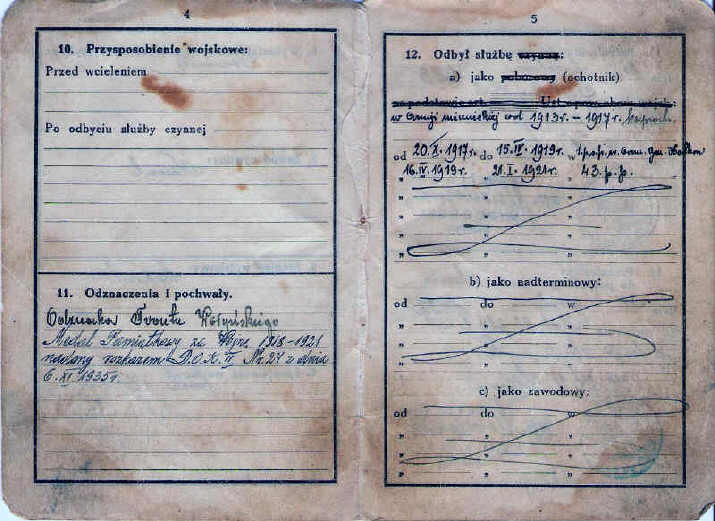 4
10. Przysposobienie wojskowe:
Przed wcieleniem
Po odbyciu służby czynnej
11. Odznaczenia i pochwały.
Odznaka Frontu Wołyńskiego
Medal Pamiątkowy za Wojnę 1918-1921
nadany rozkazem D.O.K. II Nr. 27 z dnia
6.XI.1935r.
5
12. Odbył służbę czynną:
a) jako (ochotnik)
na podstawie art. Ust. o pow. obow. wojsk.:
w armji niemieckiej od 1913r. – 1917r.
od 20.X.1917r. do 15.IV.1919r. w 1 p.p. gen.
" 16.IV.1919r. " 21.I.1921r. " 43.p.p.
" " "
" " "
" " "
" " "
b) jako nadterminowy:
od do w
" " "
" " "
" " "
c) jako zawodowy:
od do w
" " "
" " "
" " "